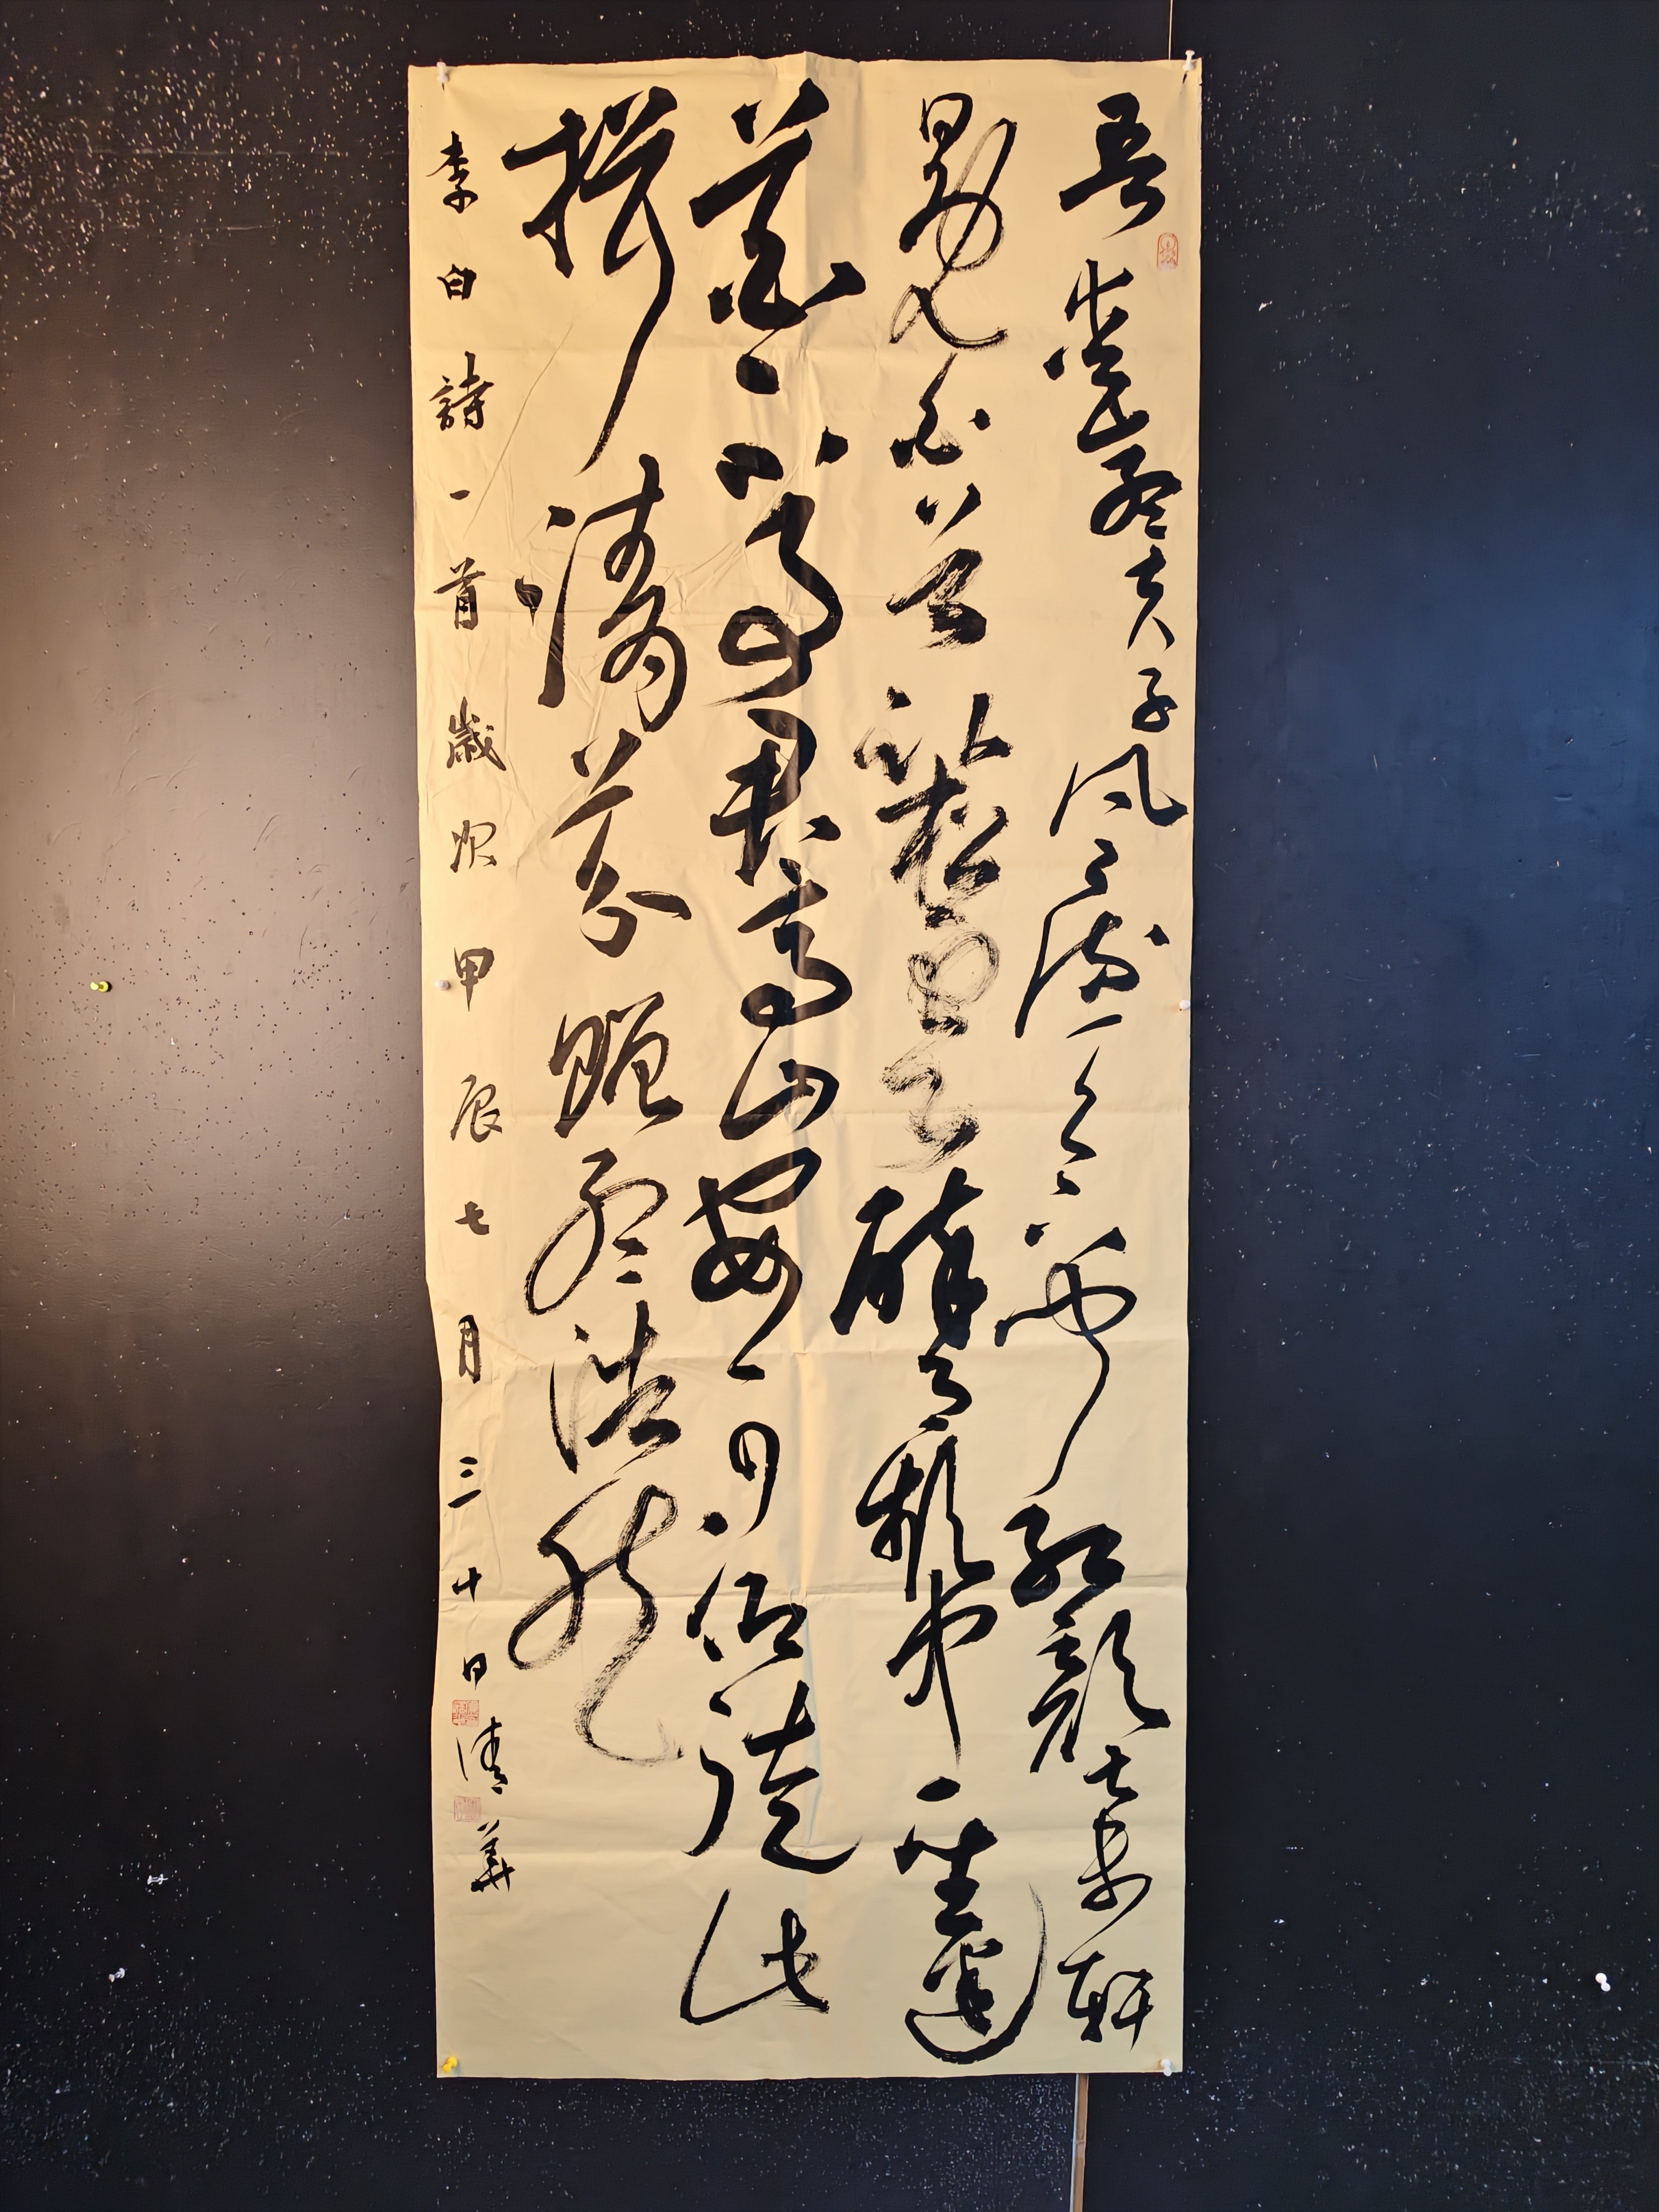 吾愛孟夫子風流天下聞紅顏棄軒
冕白首臥松雲醉月頻中聖迷
花不事君高山安可仰徒此
揖清芬贈孟浩然
李白詩一首歲次甲辰七月三十日清